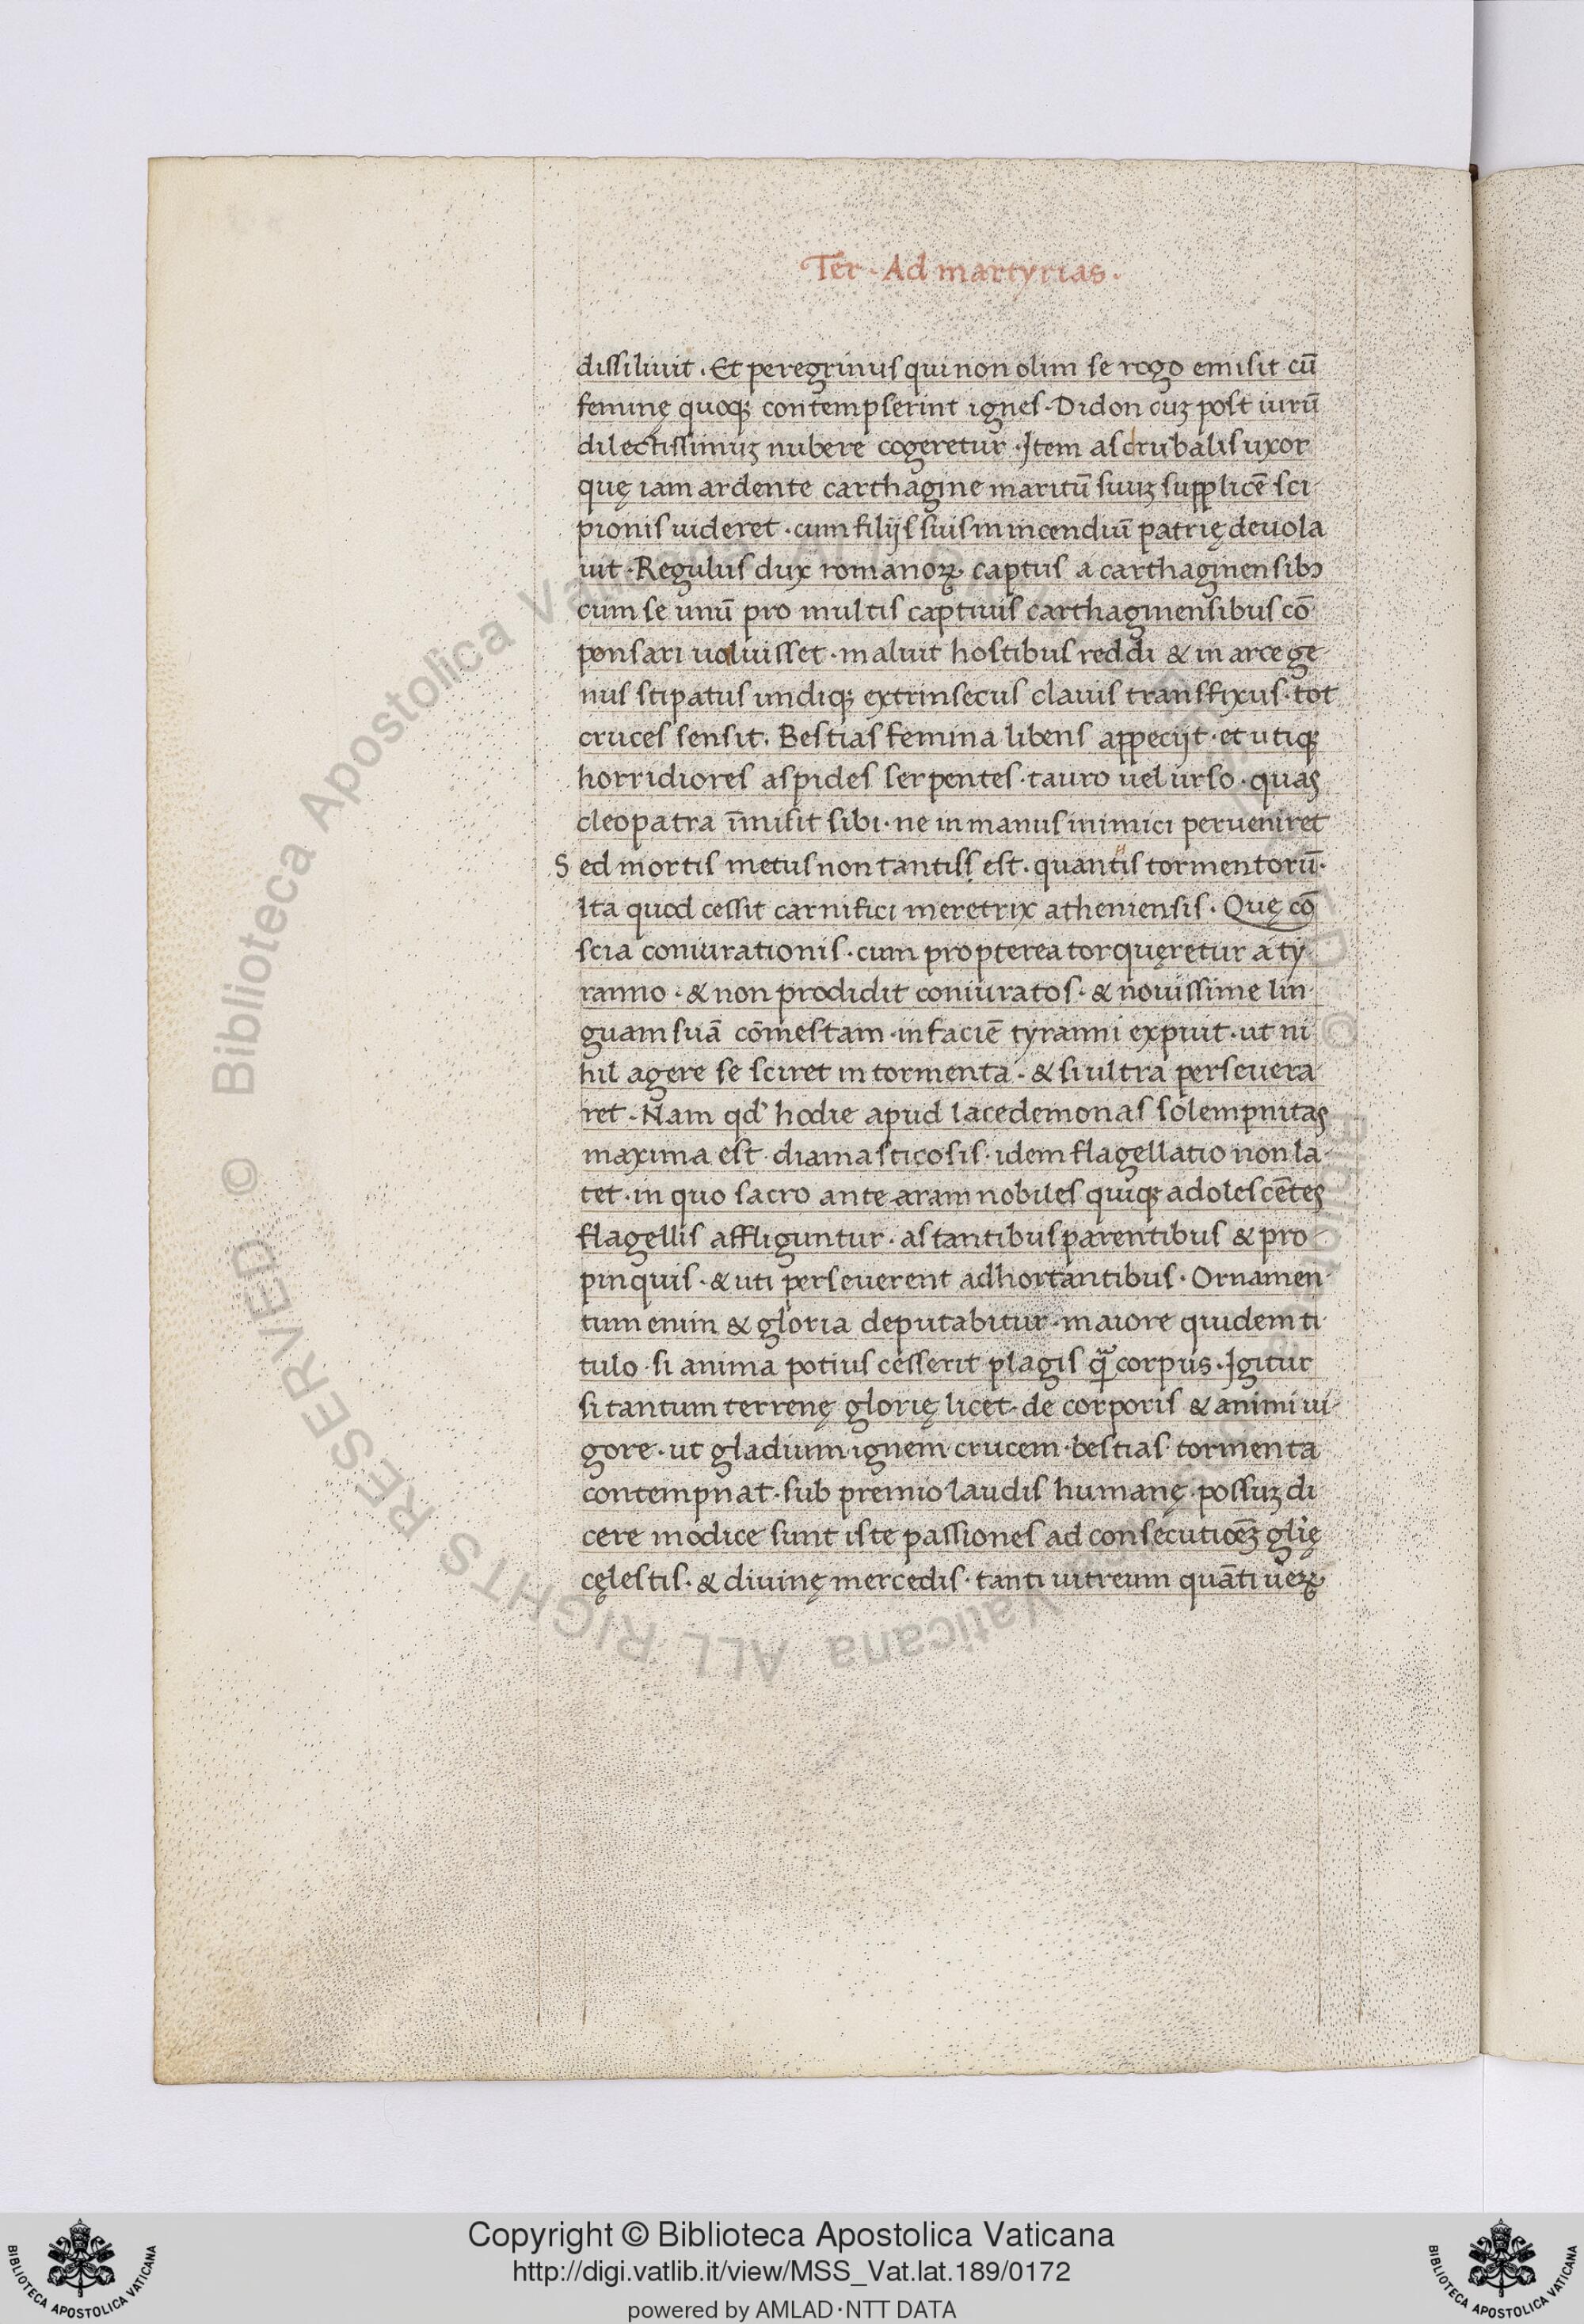 Ter · Ad martyrias ·
dissiliuit . Et peregrinus qui non olim se rogo emisit cū
feminę quoqꝫ contempserint ignes · Didon cuꝫ post iurū
dilectissimuꝫ nubere cogeretur · Item asdrubalis uxor
quę iam ardente carthagine maritū suuꝫ supplicē sci
pionis uideret · cum filijs suis in incendiū patrię deuola
uit · Regulus dux romanoꝝ captus a carthaginensibꝰ
cum se unū pro multis captiuis carthaginensibus cō
pensari uoluisset · maluit hostibus reddi & in arce ge
nus stipatus undiqꝫ extrinsecus clauis transfixus · tot
cruces sensit . Bestias femina libens appeciit · et utiqꝫ
horridiores aspides serpentes · tauro uel urso · quas
cleopatra īmisit sibi · ne in manus inimici perueniret
Sed mortis metus non tantiss est · quantis tormentorū ·
Ita quod cessit carnifici meretrix atheniensis · Quę cō
scia coniurationis · cum propterea torquęretur a ty
ranno · & non prodidit coniuratos · & nouissime lin
guam suā cōmestam · in faciē tyranni expuit · ut ni
hil agere se sciret in tormenta · & si ultra perseuera
ret · Nam qd' hodie apud lacedemonas solempnitas
maxima est · diamasticosis · idem flagellatio non la
tet · in quo sacro ante aram nobiles quiqꝫ adolescētes
flagellis affliguntur · astantibus parentibus & pro
pinquis · & uti perseuerent adhortantibus · Ornamen
tum enim & gloria deputabitur · maiore quidem ti
tulo · si anima potius cesserit plagis qᷓ corpus · Igitur
si tantum terrenę glorię licet · de corporis & animi ui
gore · ut gladium · ignem crucem · bestias · tormenta
contempnat · sub premio laudis humanę · possuꝫ di
cere modice sunt iste passiones ad consecutioēꝫ glię
cęlestis · & diuinę mercedis · tanti uitreum quāti ueꝝ
Copyright © Biblioteca Apostolica Vaticana
http://digi.vatlib.it/view/MSS_Vat.lat.189/0172
powered by AMLAD·NTT DATA
BIBLIOTECA APOSTOLICA VATICANA
BIBLIOTECA APOSTOLICA VATICANA
© Biblioteca Apostolica Vaticana ALL RIGHTS RESERVED